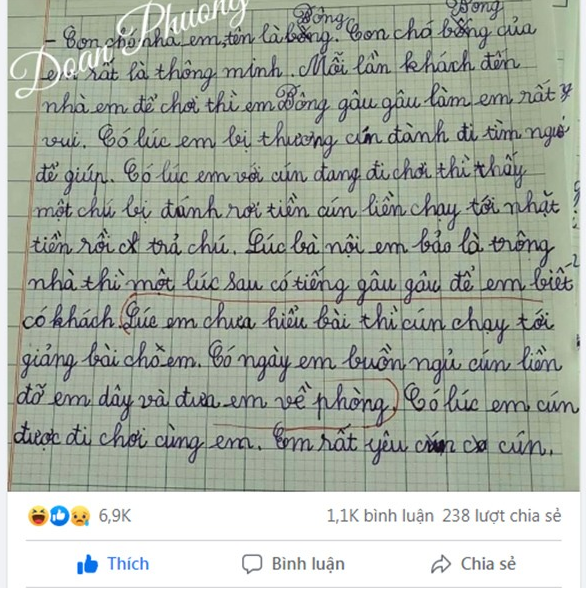 Đoan Phương
Bông Bông
- Con chó nhà em, tên là bông. Con chó bông của
em rất là thông minh. Mỗi lần khách đến
nhà em để chơi thì em Bông gâu gâu làm em rất
vui. Có lúc em bị thương cún đành đi tìm người
để giúp. Có lúc em với cún đang đi chơi thì thấy
một chú bị đánh rơi tiền cún liền chạy tới nhặt
tiền rồi trả chú. Lúc bà nội em bảo là trông
nhà thì một lúc sau có tiếng gâu gâu để em biết
có khách. Lúc em chưa hiểu bài thì cún chạy tới
giảng bài cho em. Có ngày em buồn ngủ cún liền
đỡ em dây và đưa em về phòng. Có lúc em cún
được đi chơi cùng em. Em rất yêu cún.
6,9K 1,1K bình luận 238 lượt chia sẻ
Thích Bình luận Chia sẻ